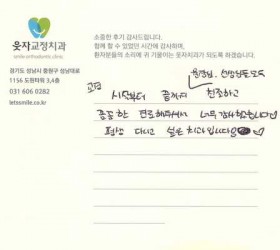 웃자교정치과
smile orthodontic clinic
경기도 성남시 중원구 성남대로
1156 도원타워 3,4층
031 606 0282
letssmile.co.kr
소중한 후기 감사드립니다.
함께 할 수 있었던 시간에 감사하며,
환자분들의 소리에 귀 기울이는 웃자치과가 되도록 하겠습니다.
원장님, 선생님들 모두
교정 시작부터 끝까지 친절하고
꼼꼼한 진료해주셔서 너무 감사합니다
평생 다니고 싶은 치과입니다